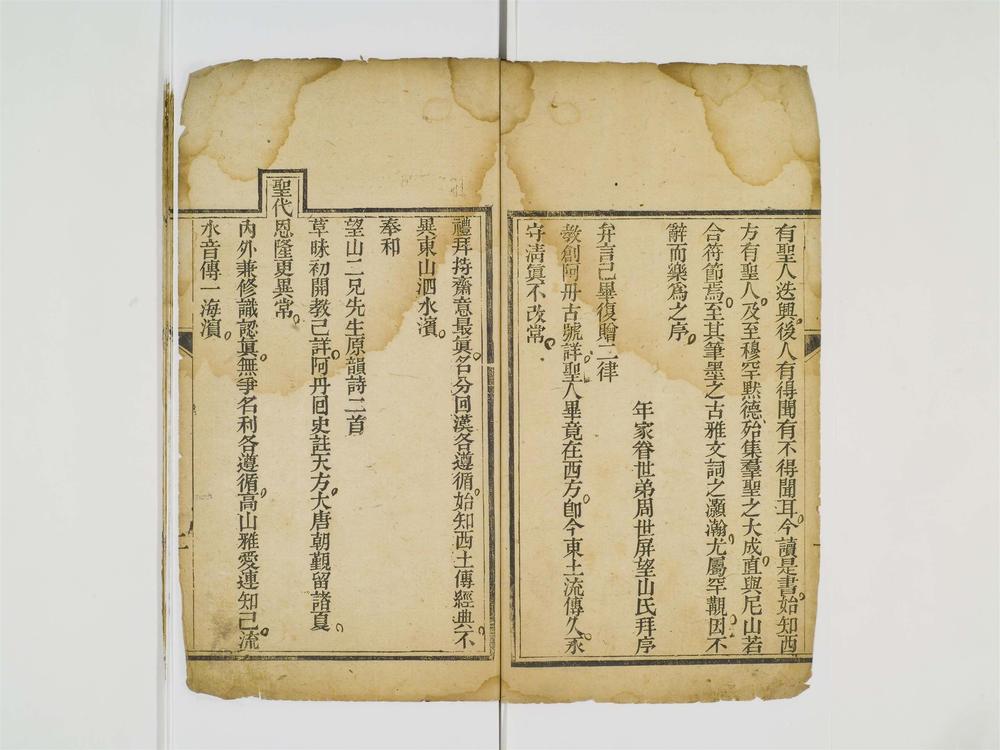 有聖人迭興後人有得聞有不得聞耳今讀是書始知西
方有聖人及至穆罕默德殆集羣聖之大成直與尼山若
合符節焉至其筆墨之古雅文詞之灝瀚尤屬罕覯因不
辭而樂為之序
年家眷世弟周世屏望山氏拜序
弁言己畢復贈二律
教創阿丹古號詳聖人畢竟在西方卽今東土流傳久永
守清眞不改常
禮拜持齋意最眞名分回漢各遵循始知西土傳經典不
異東山泗水濱
奉和
望山二兄先生原韻詩二首
草昧初開教己詳阿丹囘史註天方大唐朝覲留諸夏
聖代恩隆更異常
內外兼修識認眞無爭名利各遵循高山雅愛連知己流
水音傳一海濱